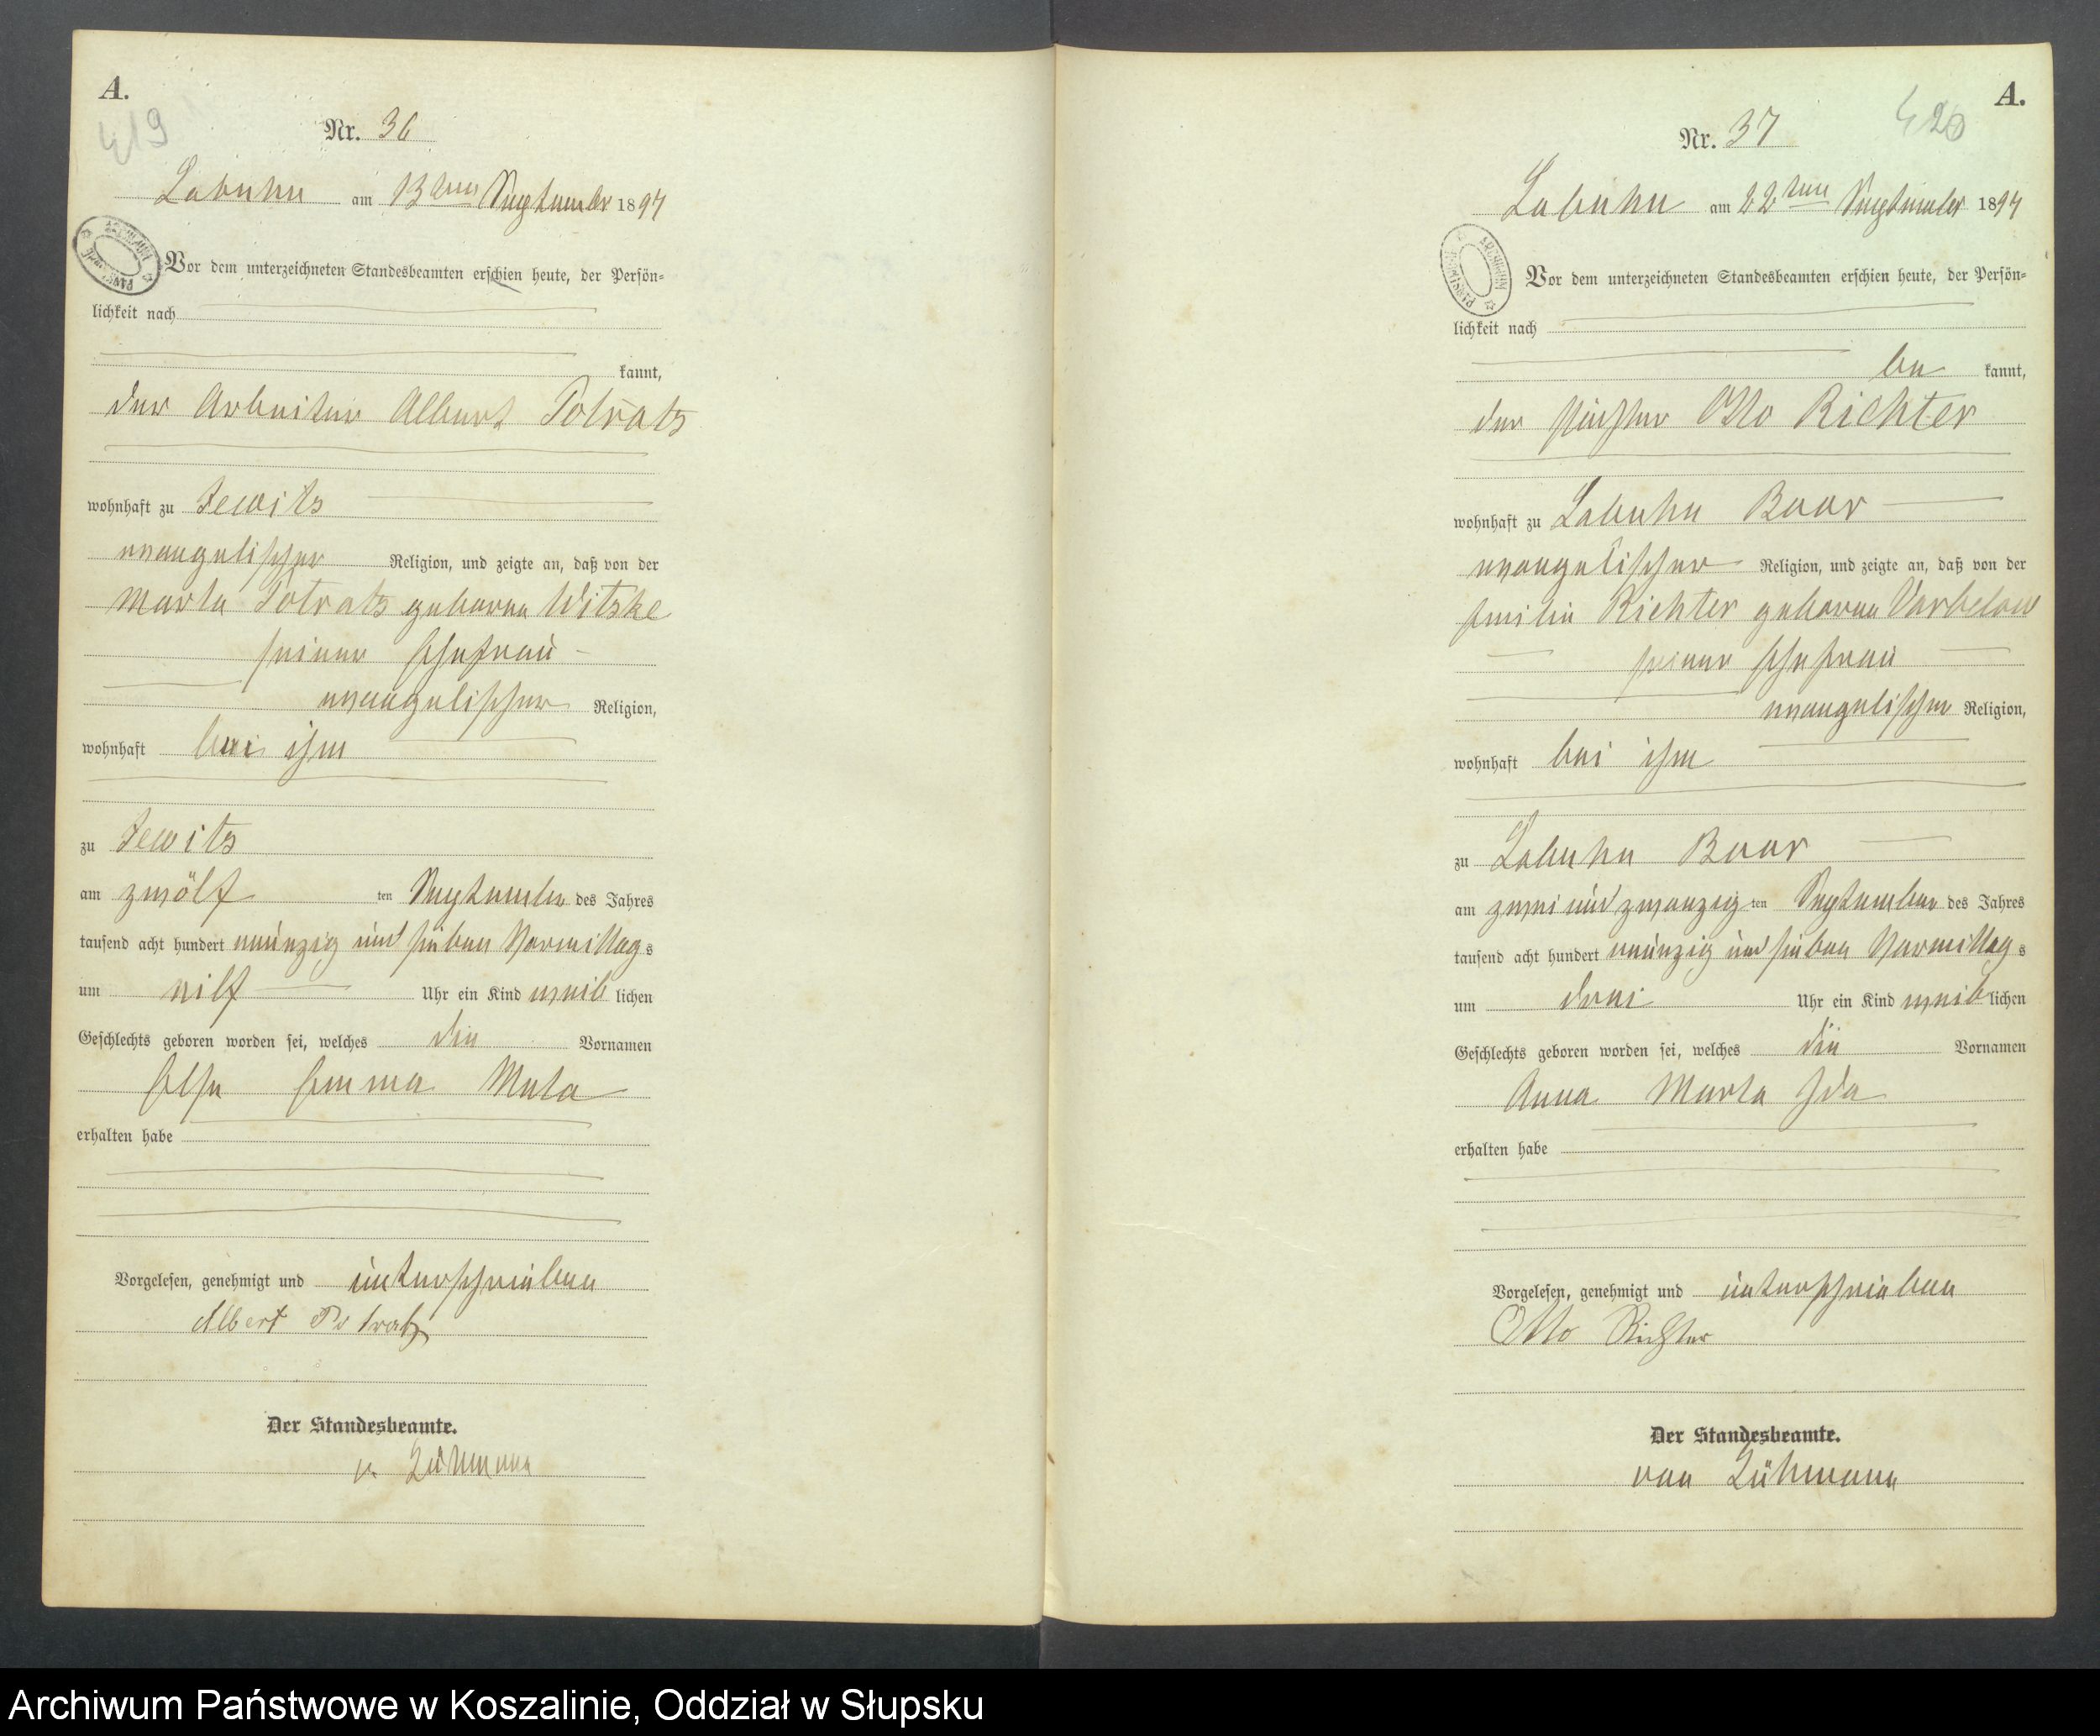 A.
419
Nr. 36
Labuhn am 13ten September 1897
Vor dem unterzeichneten Standesbeamten erschien heute, der Persön=
lichkeit nach
kannt,
der Arbeiter Albert Potratz
wohnhaft zu Jewitz
evangelischer Religion, und zeigte an, daß von der
Marta Potratz geborne Witzke
seiner Ehefrau
evangelischer Religion,
wohnhaft bei ihm
zu Jewitz
am zwölf ten September des Jahres
tausend acht hundert neunzig und sieben Vormittags
um elf Uhr ein Kind weiblichen
Geschlechts geboren worden sei, welches die Vornamen
Else Emma Meta
erhalten habe
Vorgelesen, genehmigt und unterschrieben
Albert Potratz
Der Standesbeamte.
v. Lühmann
A.
420
Nr. 37
Labuhn am 22ten September 1897
Vor dem unterzeichneten Standesbeamten erschien heute, der Persön=
lichkeit nach
be kannt,
der Otto Richter
wohnhaft zu Labuhn
evangelischer Religion, und zeigte an, daß von der
Emilie Richter geborne Varbelow
seiner Ehefrau
evangelischer Religion,
wohnhaft bei ihm
zu Labuhn
am zwei und zwanzig ten September des Jahres
tausend acht hundert neunzig und sieben Vormittags
um drei Uhr ein Kind weiblichen
Geschlechts geboren worden sei, welches die Vornamen
Anna Marta Ida
erhalten habe
Vorgelesen, genehmigt und unterschrieben
Otto Richter
Der Standesbeamte.
von Lühmann
Archiwum Państwowe w Koszalinie, Oddział w Słupsku